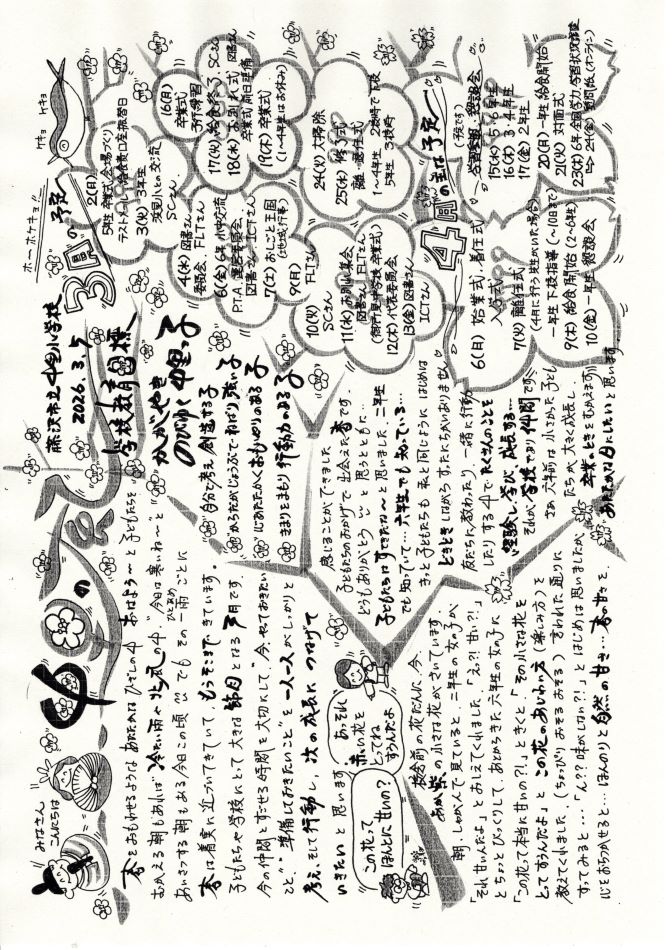 みなさん
こんにちは
藤沢市立中里小学校
2026.3.5
学校教育目標
かがやき
のびゆく中里っ子
自分で考え創造する子
からだがじょうぶでねばり強い子
心あたたかくおもいやりのある子
きまりをまもり行動力のある子
春をおもわせるようなあたたかなひざしの中おはよう〜と子どもたちを
むかえる朝もあれば冷たい雨や北風の中"今日は寒いね〜"と
あいさつする朝もある今日この頃 でもその一雨ごとに
ひとあめ
春は着実に近づいてきていて、もうそこまできています。
子どもたちや学校にとって大きな節目となる3月です。
今の仲間とすごせる時間を大切にして、"今、やっておきたい
こと""準備しておきたいこと"を一人一人がしっかりと
考え、そして行動し、次の成長につなげて
いきたいと思います
この花って
ほんとに甘いの?
あっそれ
赤い花を
とってね
すうんだよ
校舎前の花だんに、今、
あか紫の小さな花がさいています。
朝、しゃがんで見ていると、二年生の女の子が
「それ甘いんだよ」とおしえてくれました「えっ?!甘い?!」
とちょっとびっくりして、あとからきた六年生の女の子に
「この花って本当に甘いの?!」ときくと、「その小さな花を
とってすうんだよ」とこの花のあじわい方(楽しみ方)を
教えてくれました(ちょっぴりおそるおそる)言われた通りに
すってみると…「ん??味がしない?!」とはじめは思いましたが
心をおちつかせると…ほんのりと自然の甘さ…春の甘さを
感じることができました
子どもたちのおかげで出会えた春です
どうもありがとうと思うとともに…
子どもたちはすてきだな〜と思いました、二年生
でも知っていて…六年生でも知っている…
きっと子どもたちも私と同じようにはじめは
ときどきしながらすったにちがいありません
友だちに教わったり、一緒に行動
したりする中でたくさんのことを
経験し、学び、成長する…
それが学校であり仲間です
さぁ、六年前は小さかった子ども
たちが大きく成長し、
卒業のときをむかえます
あたたかな日にしたいと思います。
ホーホケキョ
ケキョ
ケキョ
3月の予定
2(月)
5年生卒業式会場づくり
テストメール 給食費口座振替日
3(火) 3年生
SCさん
4(水) 図書さん
委員会 FLTさん
6(金) 6年小中交流
P.T.A.運営委員会
図書さん・ICTさん
7(土) おしごと王国
(地域行事)
9(月)
FLTさん
10(火)
SCさん
11(水) お別れ集会
図書さん FLTさん
(御所見中学校卒業式)
12(木) 代表委員会
13(金) 図書さん
ICTさん
16(月)
卒業式
予行練習
17(火) 給食終了 SCさん
18(水) お別れ式 図書さん
卒業式前日準備
19(木) 卒業式
(1〜4年生はお休み)
24(火) 大掃除
25(水) 修了式
離退任式
1〜4年生 2時間で下校
5年生 3校時
4月の主な予定
6(月) 始業式、着任式
入学式
7(火) 離任式
(4月に行う先生がいた場合)
一年生 下校指導(〜10日まで)
9(木) 給食開始(2〜6年生)
10(金) 一年生 懇談会
学習参観、懇談会
(予定です)
15(水) 5・6年生
16(木) 3・4年生
17(金) 2年生
20(月) 一年生 給食開始
21(火) 対面式
23(木) 6年全国学力・学習状況調査
24(金) 質問紙(オンライン)